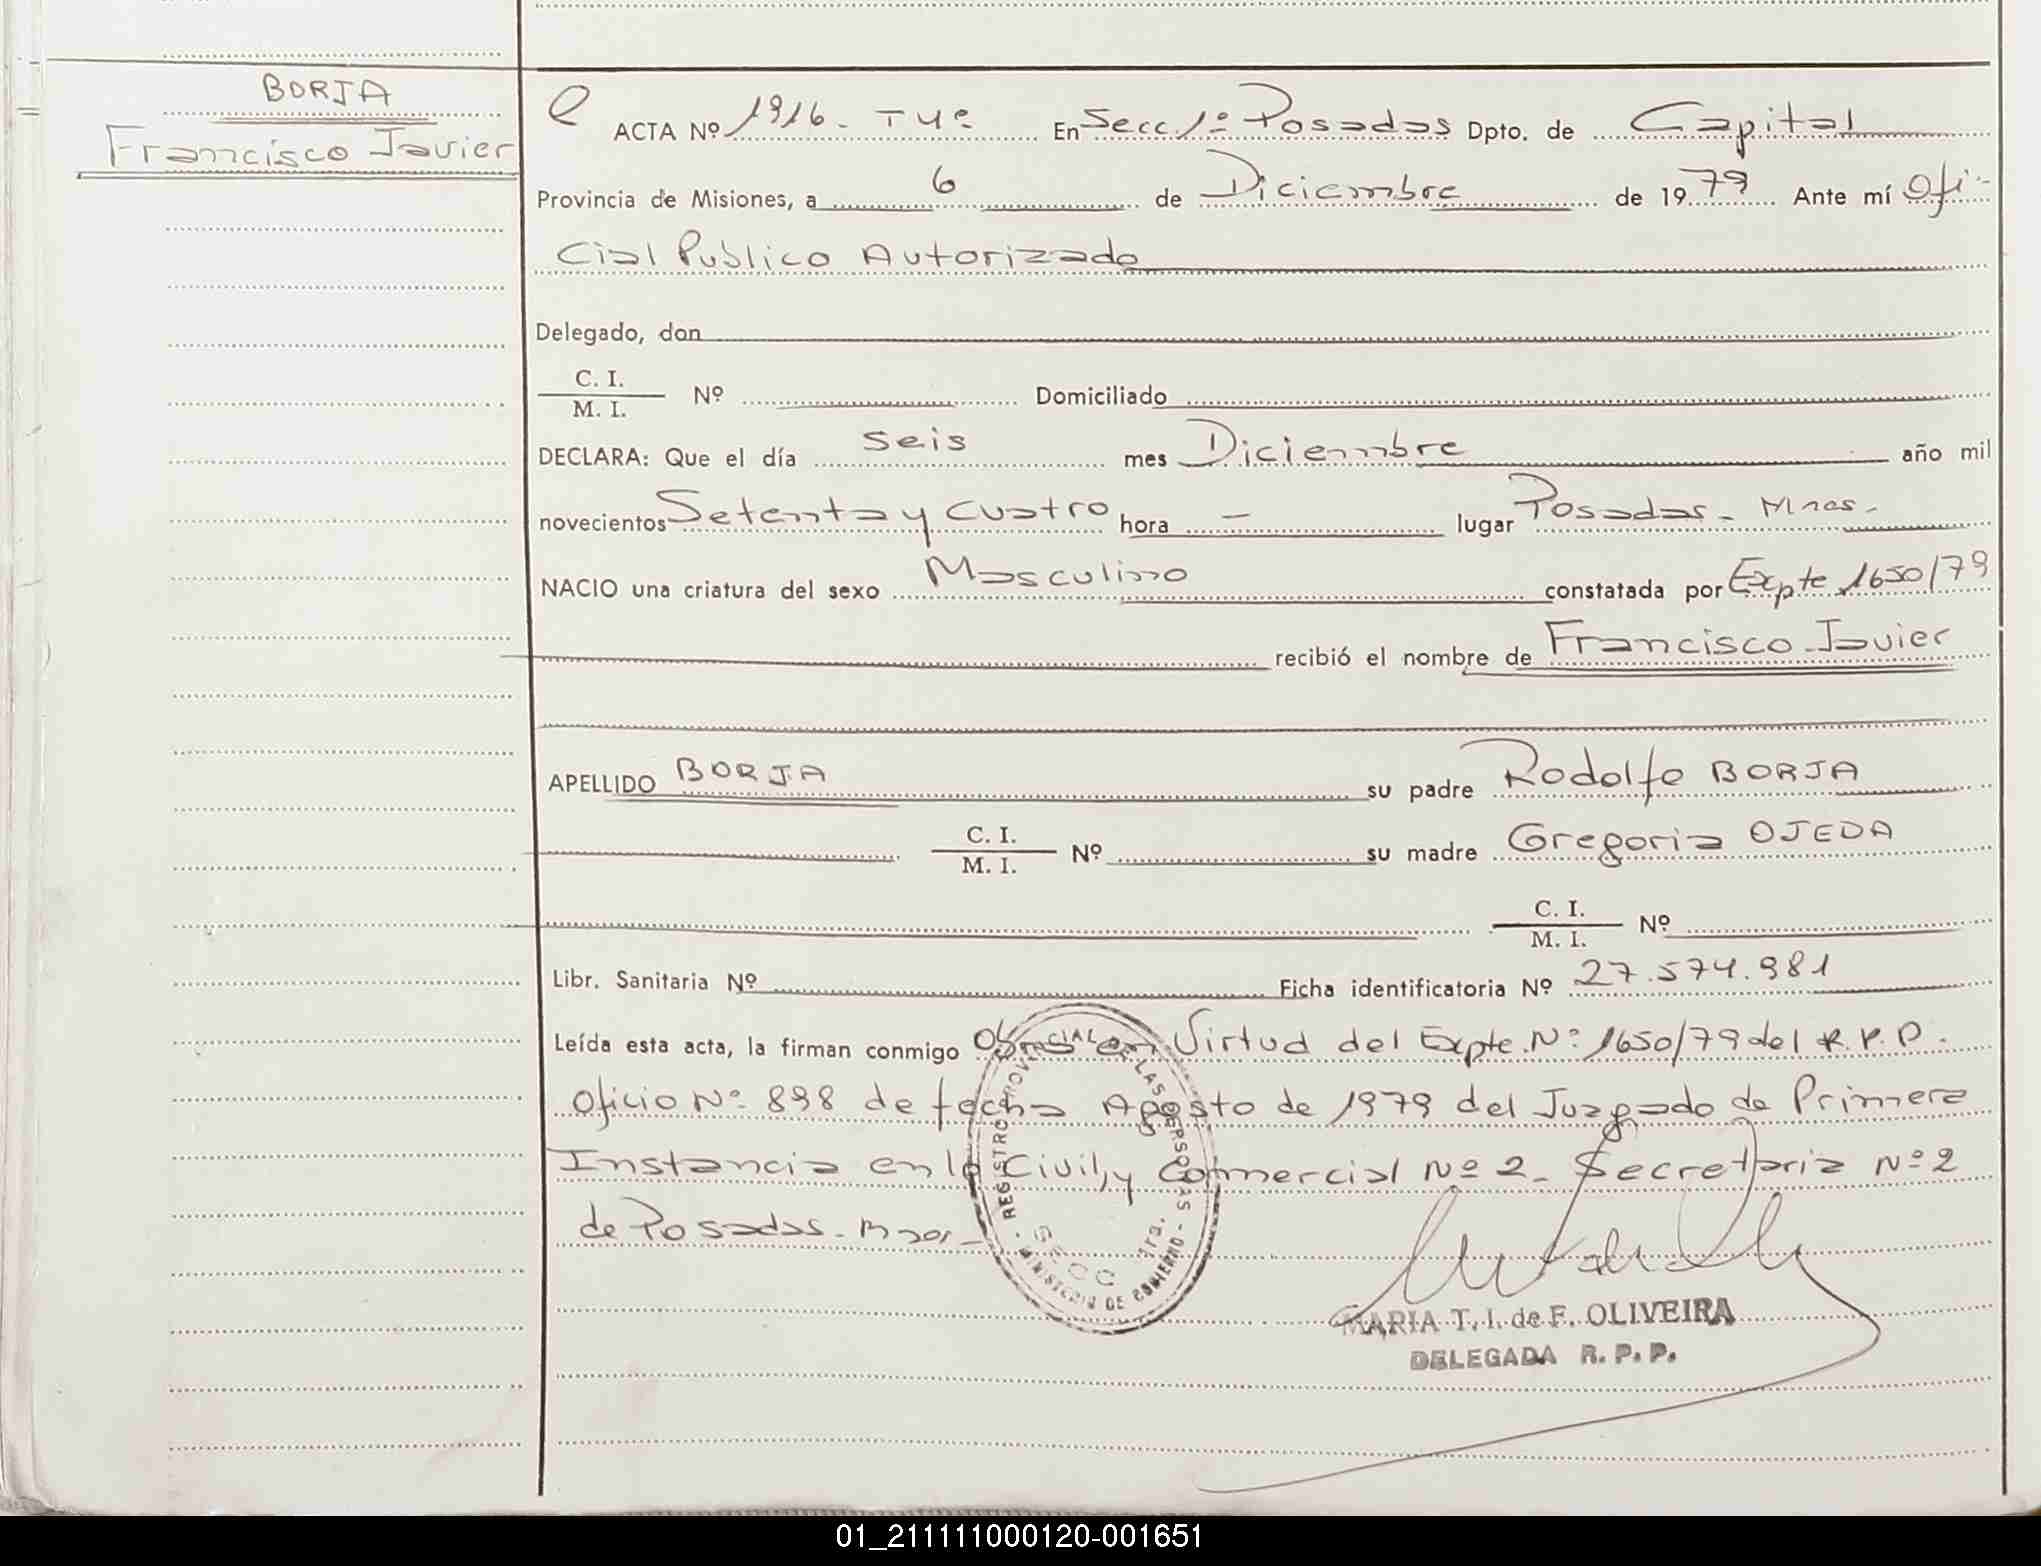 BORJA
Francisco Javier
ACTA Nº 1916. Tº 4º En Secc 1º Posadas Dpto. de Capital
Provincia de Misiones, a 6 de Diciembre de 1979 Ante mí Ofi-
cial Publico Autorizado
Delegado, don
C. I.
M. I.
Nº Domiciliado
DECLARA: Que el día seis mes Diciembre año mil
novecientos Setenta y Cuatro hora - lugar Posadas - Mnes.
NACIO una criatura del sexo Masculino constatada por Expte 1650/79
recibió el nombre de Francisco Javier
APELLIDO BORJA su padre Rodolfo BORJA
C. I.
M. I.
Nº su madre Gregoria OJEDA
C. I.
M. I.
Nº
Libr. Sanitaria Nº Ficha identificatoria Nº 27.574.981
Leída esta acta, la firman conmigo Obs: en Virtud del Expte. Nº 1650/79 del R.P.P.
Oficio Nº 898 de fecha Agosto de 1979 del Juzgado de Primera
Instancia en lo Civil y Comercial Nº 2 - Secretaria Nº 2
de Posadas -
REGISTRO PROVINCIAL DE LAS PERSONAS - MINISTERIO DE GOBIERNO -
SECC 1ra.
MARIA T. I. de F. OLIVEIRA
DELEGADA R. P. P.
01_211111000120-001651